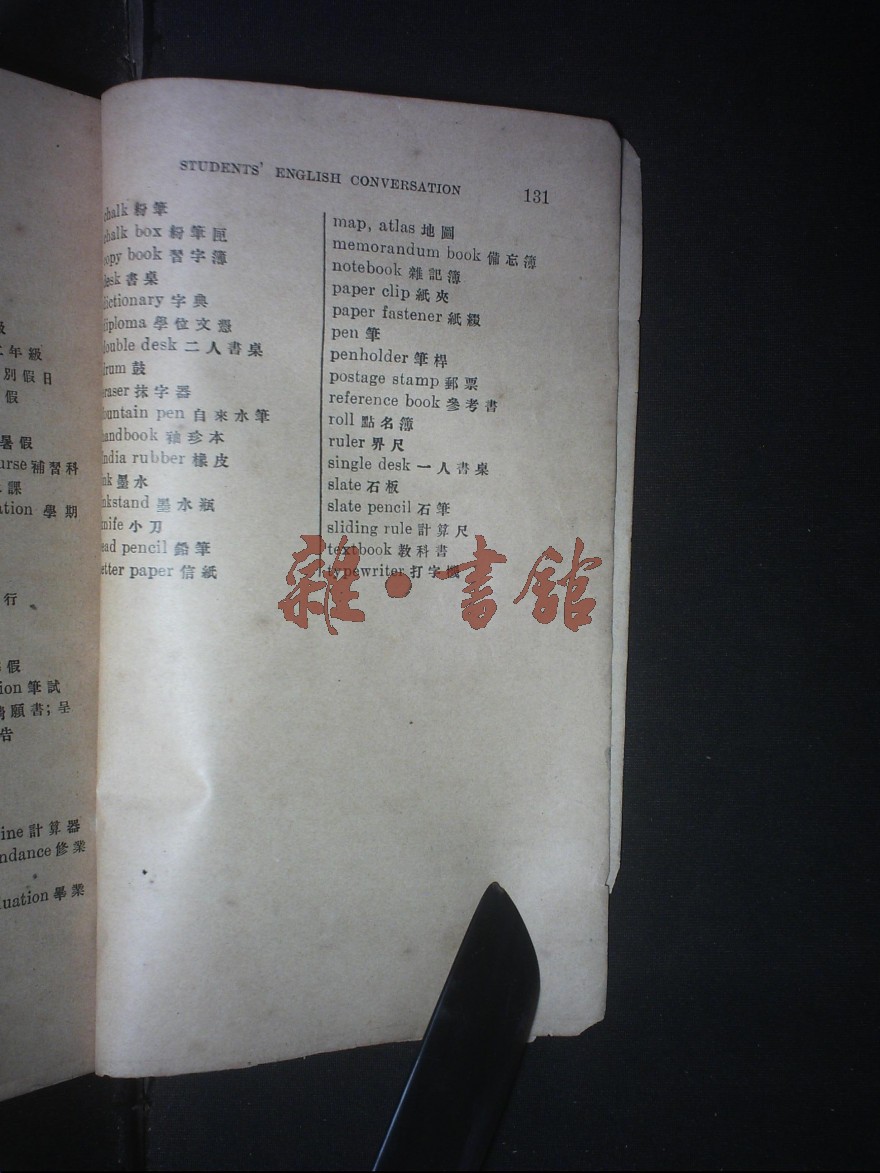 級
二年級
別假日
假
暑假
urse 補習科
課
ation 學期
行
假
ion 筆試
願書；呈
告
ine 計算器
ndance 修業
uation 畢業
STUDENTS' ENGLISH CONVERSATION 131
chalk 粉筆
chalk box 粉筆匣
copy book 習字簿
desk 書桌
dictionary 字典
diploma 學位文憑
double desk 二人書桌
drum 鼓
eraser 抹字器
fountain pen 自來水筆
handbook 袖珍本
India rubber 橡皮
ink 墨水
inkstand 墨水瓶
knife 小刀
lead pencil 鉛筆
letter paper 信紙
map, atlas 地圖
memorandum book 備忘簿
notebook 雜記簿
paper clip 紙夾
paper fastener 紙綴
pen 筆
penholder 筆桿
postage stamp 郵票
reference book 參考書
roll 點名簿
ruler 界尺
single desk 一人書桌
slate 石板
slate pencil 石筆
sliding rule 計算尺
textbook 教科書
typewriter 打字機
雜·書館